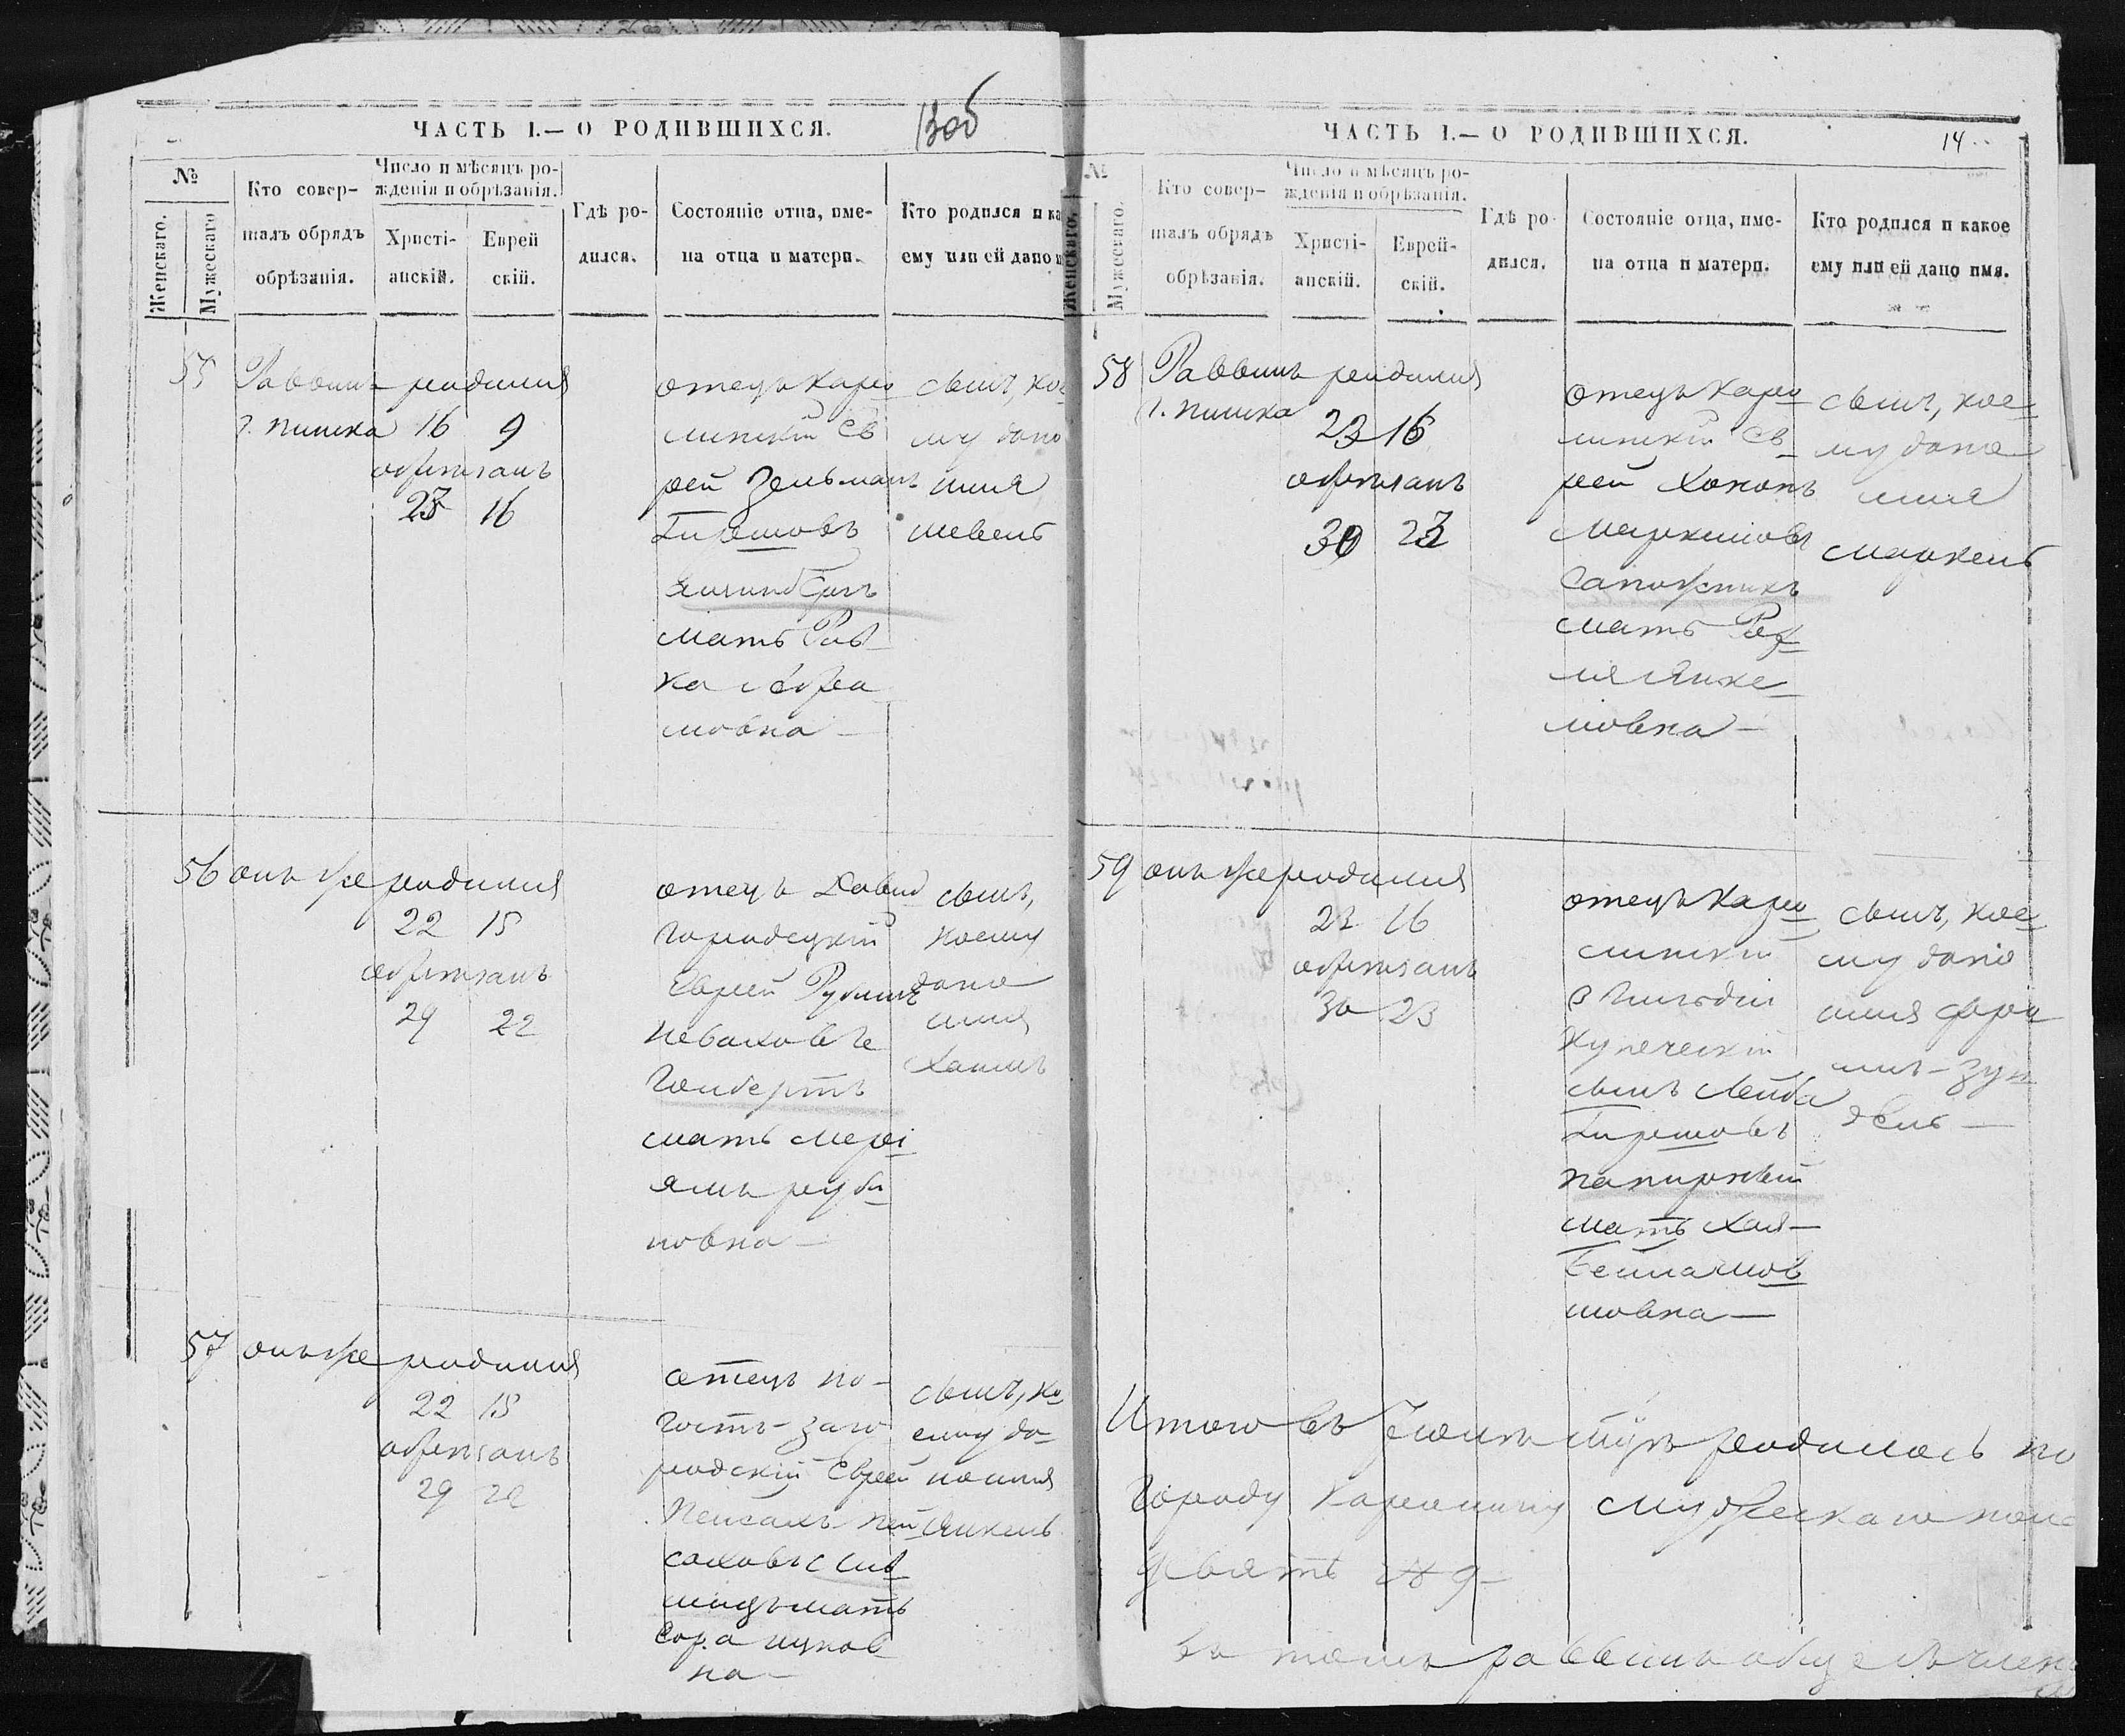 ЧАСТЬ I.— О РОДИВШИХСЯ.
13об
№
Женскаго.
Мужескаго
Кто совер-
шалъ обрядъ
обрѣзанія.
Число и мѣсяцъ ро-
жденія и обрѣзанія.
Христі-
анскій.
Еврей
скій.
Гдѣ ро-
дился.
Состояніе отца, име-
на отца и матери.
Кто родился и ка
ему или ей дано и
55
Раввинъ родился
г. пинска 16 9
обрезанъ
23 16
отецъ Каро
линскій Ев
рей Зельманъ
Гиршовъ
мать Рив
ка Абра
мовна —
сынъ, кое
му дано
имя
шевель
56 онъ же родился
22 15
обрезанъ
29 22
отецъ Давид
городецкій
Еврей Рубинъ
мать мері
ямъ руби
новна —
сынъ,
коему
дано
имя
Хаимъ
57 онъ же родился
22 15
обрезанъ
29 22
отецъ по-
гостъ-заго
родскій Еврей
Пейсахъ Пей
саховъ
мать
Сора
на —
сынъ, ко
ему да-
но имя
Янкель
ЧАСТЬ I.— О РОДИВШИХСЯ.
14
№
Женскаго.
Мужескаго.
Кто совер-
шалъ обрядъ
обрѣзанія.
Число и мѣсяцъ ро-
жденія и обрѣзанія.
Христі-
анскій.
Еврей-
скій.
Гдѣ ро-
дился.
Состояніе отца, име-
на отца и матери.
Кто родился и какое
ему или ей дано имя.
58 Раввинъ родился
г. пинска
23 16
обрезанъ
30 23
отецъ Каро
линскій Ев
рей Хононъ
Меркелювъ
Сапожникъ
мать
Янке
лювна —
сынъ, кое
му дано
имя
меркель
59 онъ же родился
23 16
обрезанъ
30 23
отецъ Каро
линскій
3 Гильдіи
Купеческій
сынъ Лейба
Гиршовъ
папирный
мать Хая —
мовна —
сынъ, кое
му дано
имя фрои
имъ-зун
дель —
Итого въ мцѣ родилось по
городу Каролину мужескаго пола
девять № 9 —
въ томъ раввинъ